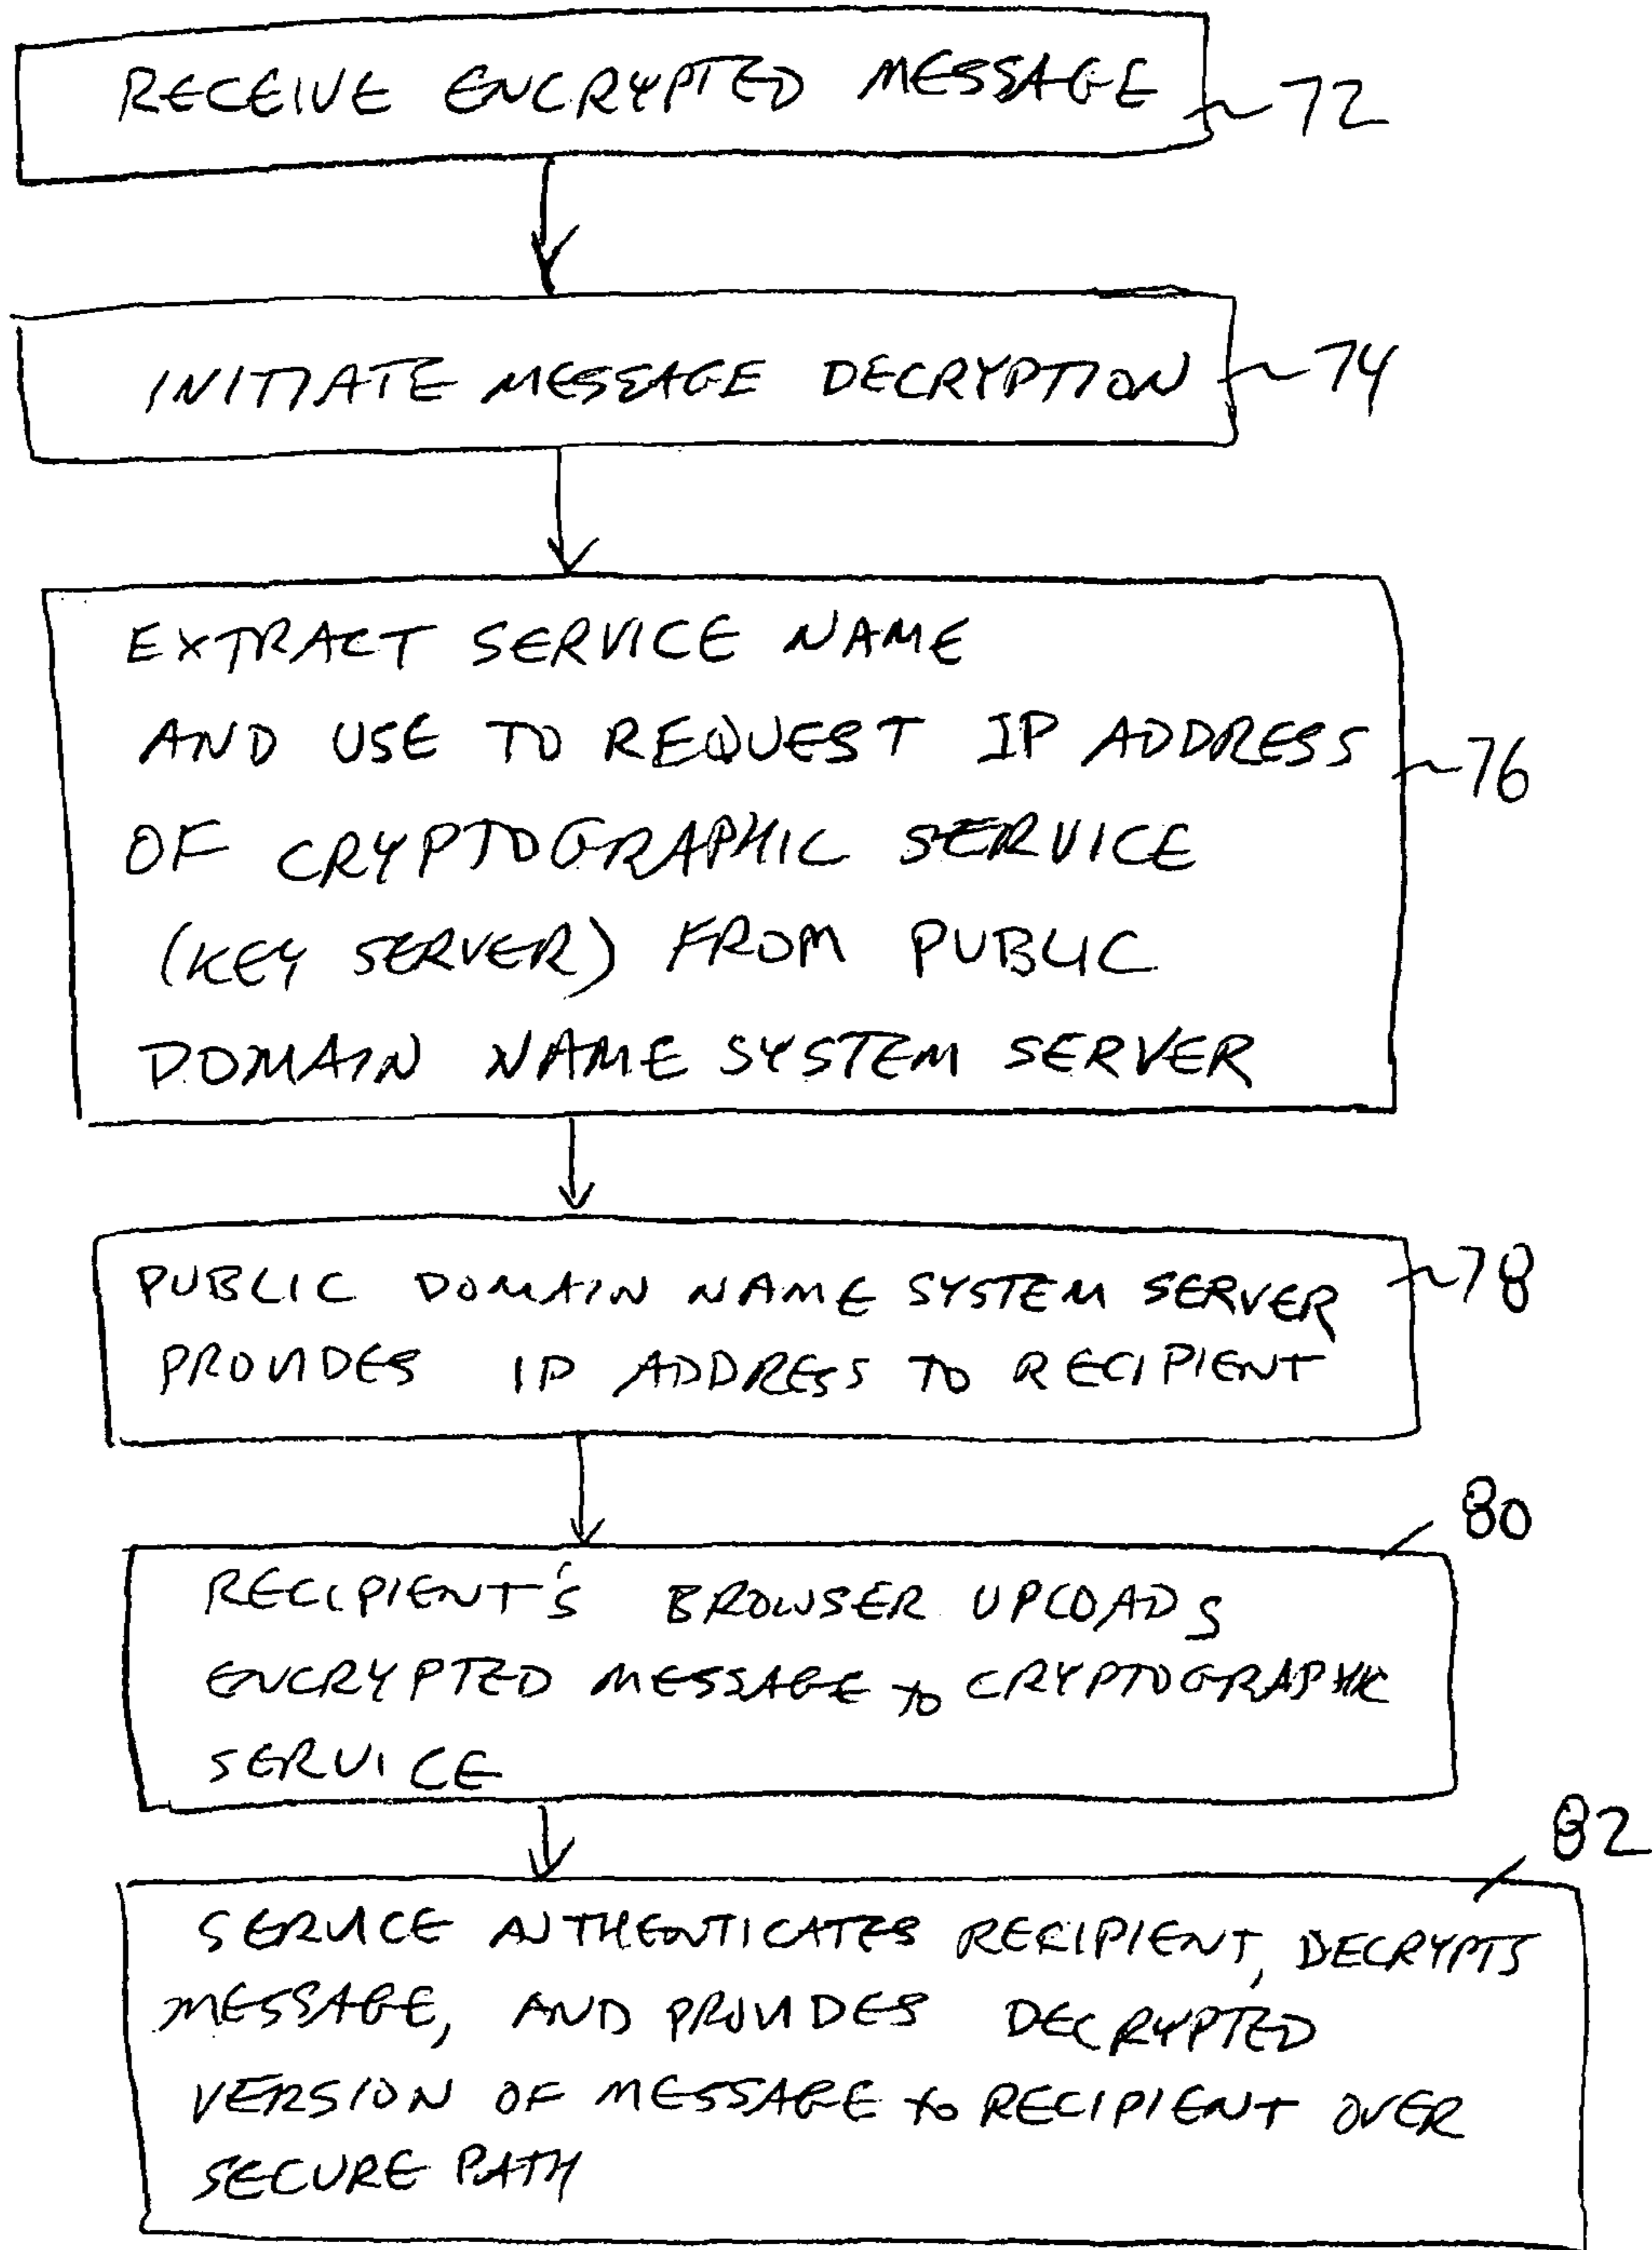 RECEIVE ENCRYPTED MESSAGE ~72
INITIATE MESSAGE DECRYPTION ~74
EXTRACT SERVICE NAME
AND USE TO REQUEST IP ADDRESS
~76
OF CRYPTOGRAPHIC SERVICE
(KEY SERVER) FROM PUBLIC
DOMAIN NAME SYSTEM SERVER
PUBLIC DOMAIN NAME SYSTEM SERVER ~78
PROVIDES IP ADDRESS TO RECIPIENT
80
RECIPIENT'S BROWSER UPLOADS
ENCRYPTED MESSAGE to CRYPTOGRAPHIC
SERVICE
82
SERVICE AUTHENTICATES RECIPIENT, DECRYPTS
MESSAGE, AND PROVIDES DECRYPTED
VERSION OF MESSAGE to RECIPIENT OVER
SECURE PATH